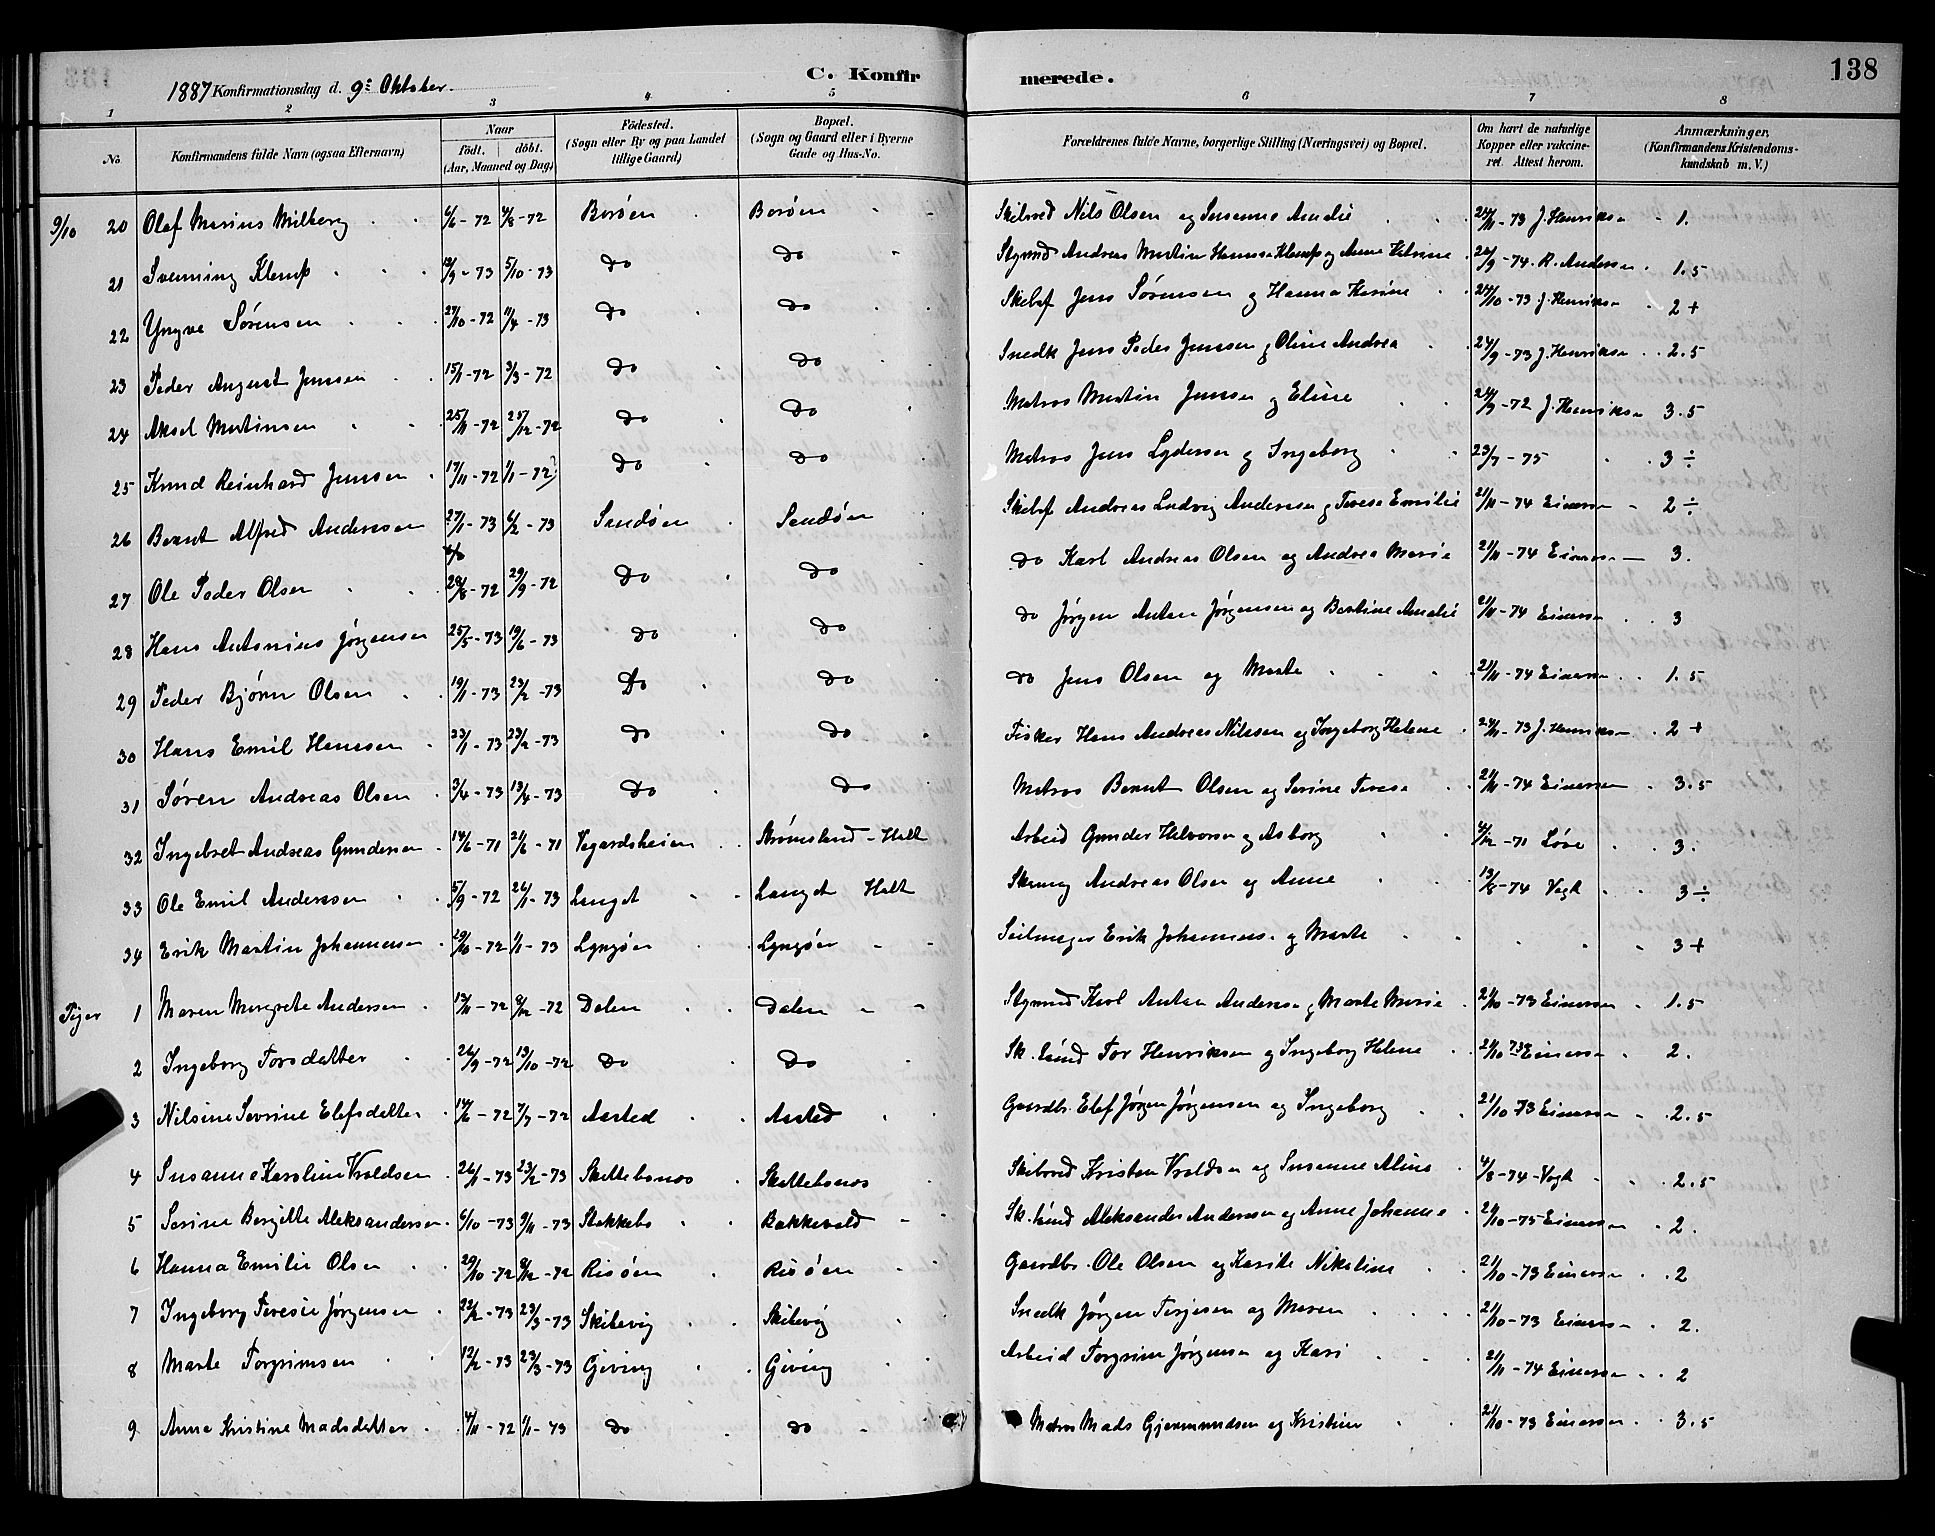 138
1887 Konfirmationsdag d. 9: Oktober.
C. Konfirmerede.
1 2 3 4 5 6 7 8
No.
Konfirmandens fulde Navn (ogsaa Efternavn)
Naar
födt. döbt.
(Aar, Maaned og Dag)
Födested.
(Sogn eller By og paa Landet
tillige Gaard)
Bopæl.
(Sogn og Gaard eller i Byerne
Gade og Hus-No.
Forældrenes fulde Navne, borgerlige Stilling (Næringsvei) og Bopæl.
Om havt de naturlige
Kopper eller vakcine-
ret. Attest herom.
Anmærkninger,
(Konfirmandens Kristendoms-
kundskab m. V.)
9/10 20 Olaf Marius Milberg 6/6-72 4/8-72 Borøen Borøen Skibred Nils Olsen og Susanne Amalie 24/11-73 J. Henriksen 1.
21 Svenning Klemp 12/9-73 5/10-73 do do Stymd Andreas Martin Hansen Klemp og Anne Katrine 24/9-74 R. Andersen 1.5
22 Yngve Sørensen 27/10-72 11/4-73 do do Skibsf Jens Sørensen og Hanna Karine 24/10-73 J. Henriksen 2+
23 Peder August Jensen 15/1-72 3/3-72 do do Snedk Jens Peder Jensen og Oline Andrea 24/9-73 J. Henriksen 2.5
24 Aksel Martinsen 25/11-72 25/12-72 do do Matros Martin Jensen og Eline 24/9-72 J. Henriksen 3.5
25 Knud Reinhard Jensen 17/11-72 1/1-72 do do Matros Jens Lydersen og Ingeborg 23/7-75 3÷
26 Bernt Alfred Andersen 27/1-73 6/2-73 Sandøen Sandøen Skibsf Andreas Ludvig Andersen og Terese Emilie 21/11-74 Einersen 2÷
27 Ole Peder Olsen 20/8-72 29/9-72 do do do Karl Andreas Olsen og Andrea Marie 21/11-74 Einersen 3.
28 Hans Antonius Jørgensen 25/5-73 19/6-73 do do do Jørgen Anton Jørgensen og Bertine Amalie 21/11-74 Einersen 3
29 Peder Bjørn Olsen 19/1-73 23/2-73 do do do Jens Olsen og Marte 21/11-74 Einersen 1.5
30 Hans Emil Hansen 23/1-73 23/2-73 do do Fisker Hans Andreas Nilssen og Ingeborg Helene 24/11-73 J. Henriksen 2+
31 Søren Andreas Olsen 3/4-73 13/4-73 do do Matros Bernt Olsen og Serine Terese 21/11-74 Einersen 3.5
32 Ingebret Andreas Gundersen 14/6-71 21/6-71 Vegardsheien Strømsland-Holt Arbeid Gunder Halvorsen og Asborg 4/12-71 Løve 3.
33 Ole Emil Andersen 5/9-72 26/1-73 Langet Langet Holt Andreas Olsen og Anne 13/8-74 Vogt 3÷
34 Erik Martin Johannesen 29/10-72 1/1-73 Lyngøer Lyngøer Seilmager Erik Johannesen og Marte 3+
Piger 1 Maren Margrete Andersen 13/11-72 8/12-72 Dalen Dalen Stymd Karl Anton Andersen og Marte Marie 21/10-73 Einersen 1.5
2 Ingeborg Torsdatter 26/9-72 13/10-72 do do Sk.tømd Tor Henriksen og Ingeborg Helene 21/10 73 Einersen 2.
3 Nilsine Sevrine Elefsdatter 14/6-72 7/7-72 Aasted Aasted Gaardbr. Elef Jørgen Jørgensen og Ingeborg 21/10 73 Einersen 2.5
4 Susanne Karoline Vraldsen 26/1-73 23/2-73 Skettebonæs Skettebonæs Skibred Kristen Vraldsen og Susanne Aline 4/8-74 Vogt 2.5
5 Serine Bergitte Aleksandersen 6/10-73 9/11-73 Stokkebo Bakkevold Sk.tømd Aleksander Andersen og Anne Johanne 21/10-75 Einersen 2.
6 Hanna Emilie Olsen 20/10-72 8/12-72 Risøen Risøen Gaardbr. Ole Olsen og Karite Nikoline 21/10-73 Einersen 2
7 Ingeborg Teresie Jørgensen 22/2-73 23/3-73 Skibevig Skibevig Snedk Jørgen Terjesen og Maren 21/10-73 Einersen 2.
8 Marte Torgrimsen 12/2-73 23/3-73 Gjeving Gjeving Arbeid Torgrim Jørgensen og Kari 21/11-74 Einersen 2
9 Anne Kristine Madsdatter 4/11-72 1/1-73 do do Matros Mads Gjermundsen og Kristine 21/10-73 Einersen 3.5